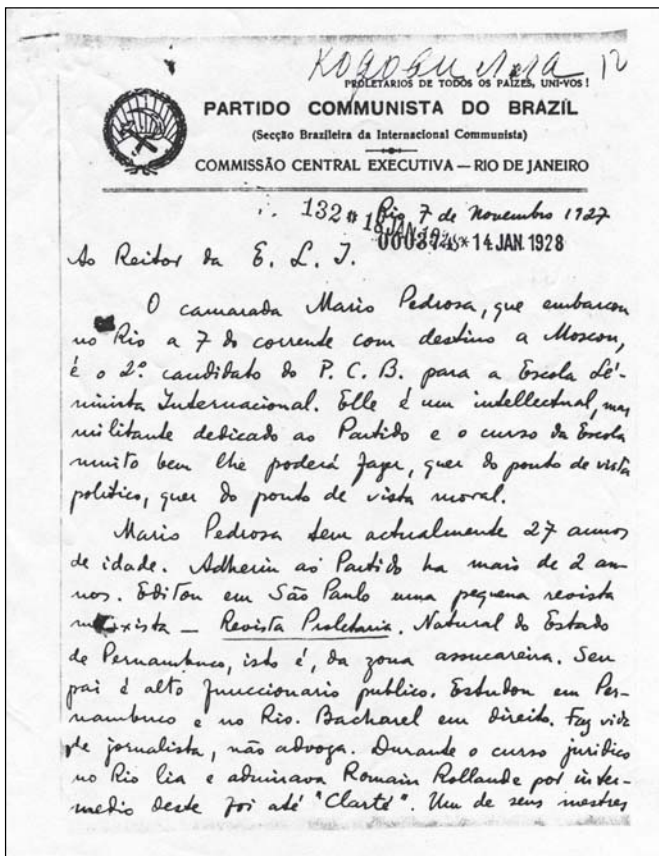 12
PROLETARIOS DE TODOS OS PAIZES, UNI-VOS!
PARTIDO COMMUNISTA DO BRAZIL
(Secção Brazileira da Internacional Communista)
COMMISSÃO CENTRAL EXECUTIVA — RIO DE JANEIRO
132 Rio, 7 de Novembro 1927
000374 * 14 JAN. 1928
Ao Reitor da E. L. I.
O camarada Mario Pedrosa, que embarcou
no Rio a 7 do corrente com destino a Moscou,
é o 2º candidato do P. C. B. para a Escola Lé-
ninista Internacional. Elle é um intellectual, mas
militante dedicado ao Partido e o curso da Escola
muito bem lhe poderá fazer, quer do ponto de vista
politico, quer do ponto de vista moral.
Mario Pedrosa tem actualmente 27 annos
de idade. Adheriu ao Partido ha mais de 2 an-
nos. Editou em São Paulo uma pequena revista
marxista — Revista Proletaria. Natural do Estado
de Pernambuco, isto é, da zona assucareira. Seu
pai é alto funccionario publico. Estudou em Per-
nambuco e no Rio. Bacharel em direito. Faz vida
de jornalista, não advoga. Durante o curso juridico
no Rio lia e admirava Romain Rolland e por inter-
medio deste foi até "Clarté". Um de seus mestres